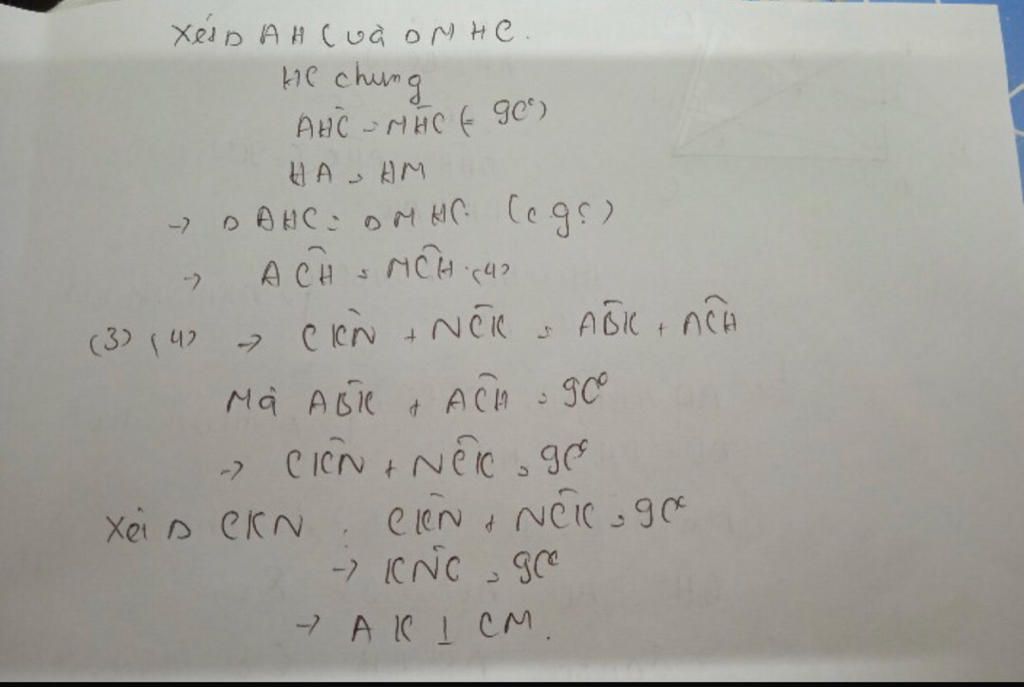 Xét Δ AHC và Δ MHC.
HC chung
AĤC = MĤC (= 90°)
HA = HM
→ Δ AHC = Δ MHC (c.g.c)
→ AĈH = MĈH (4)
(3) (4) → CK̂N + NĈK = AB̂K + AĈH
Mà AB̂K + AĈH = 90°
→ CK̂N + NĈK = 90°
Xét Δ CKN : CK̂N + NĈK = 90°
→ KN̂C = 90°
→ AK ⊥ CM.